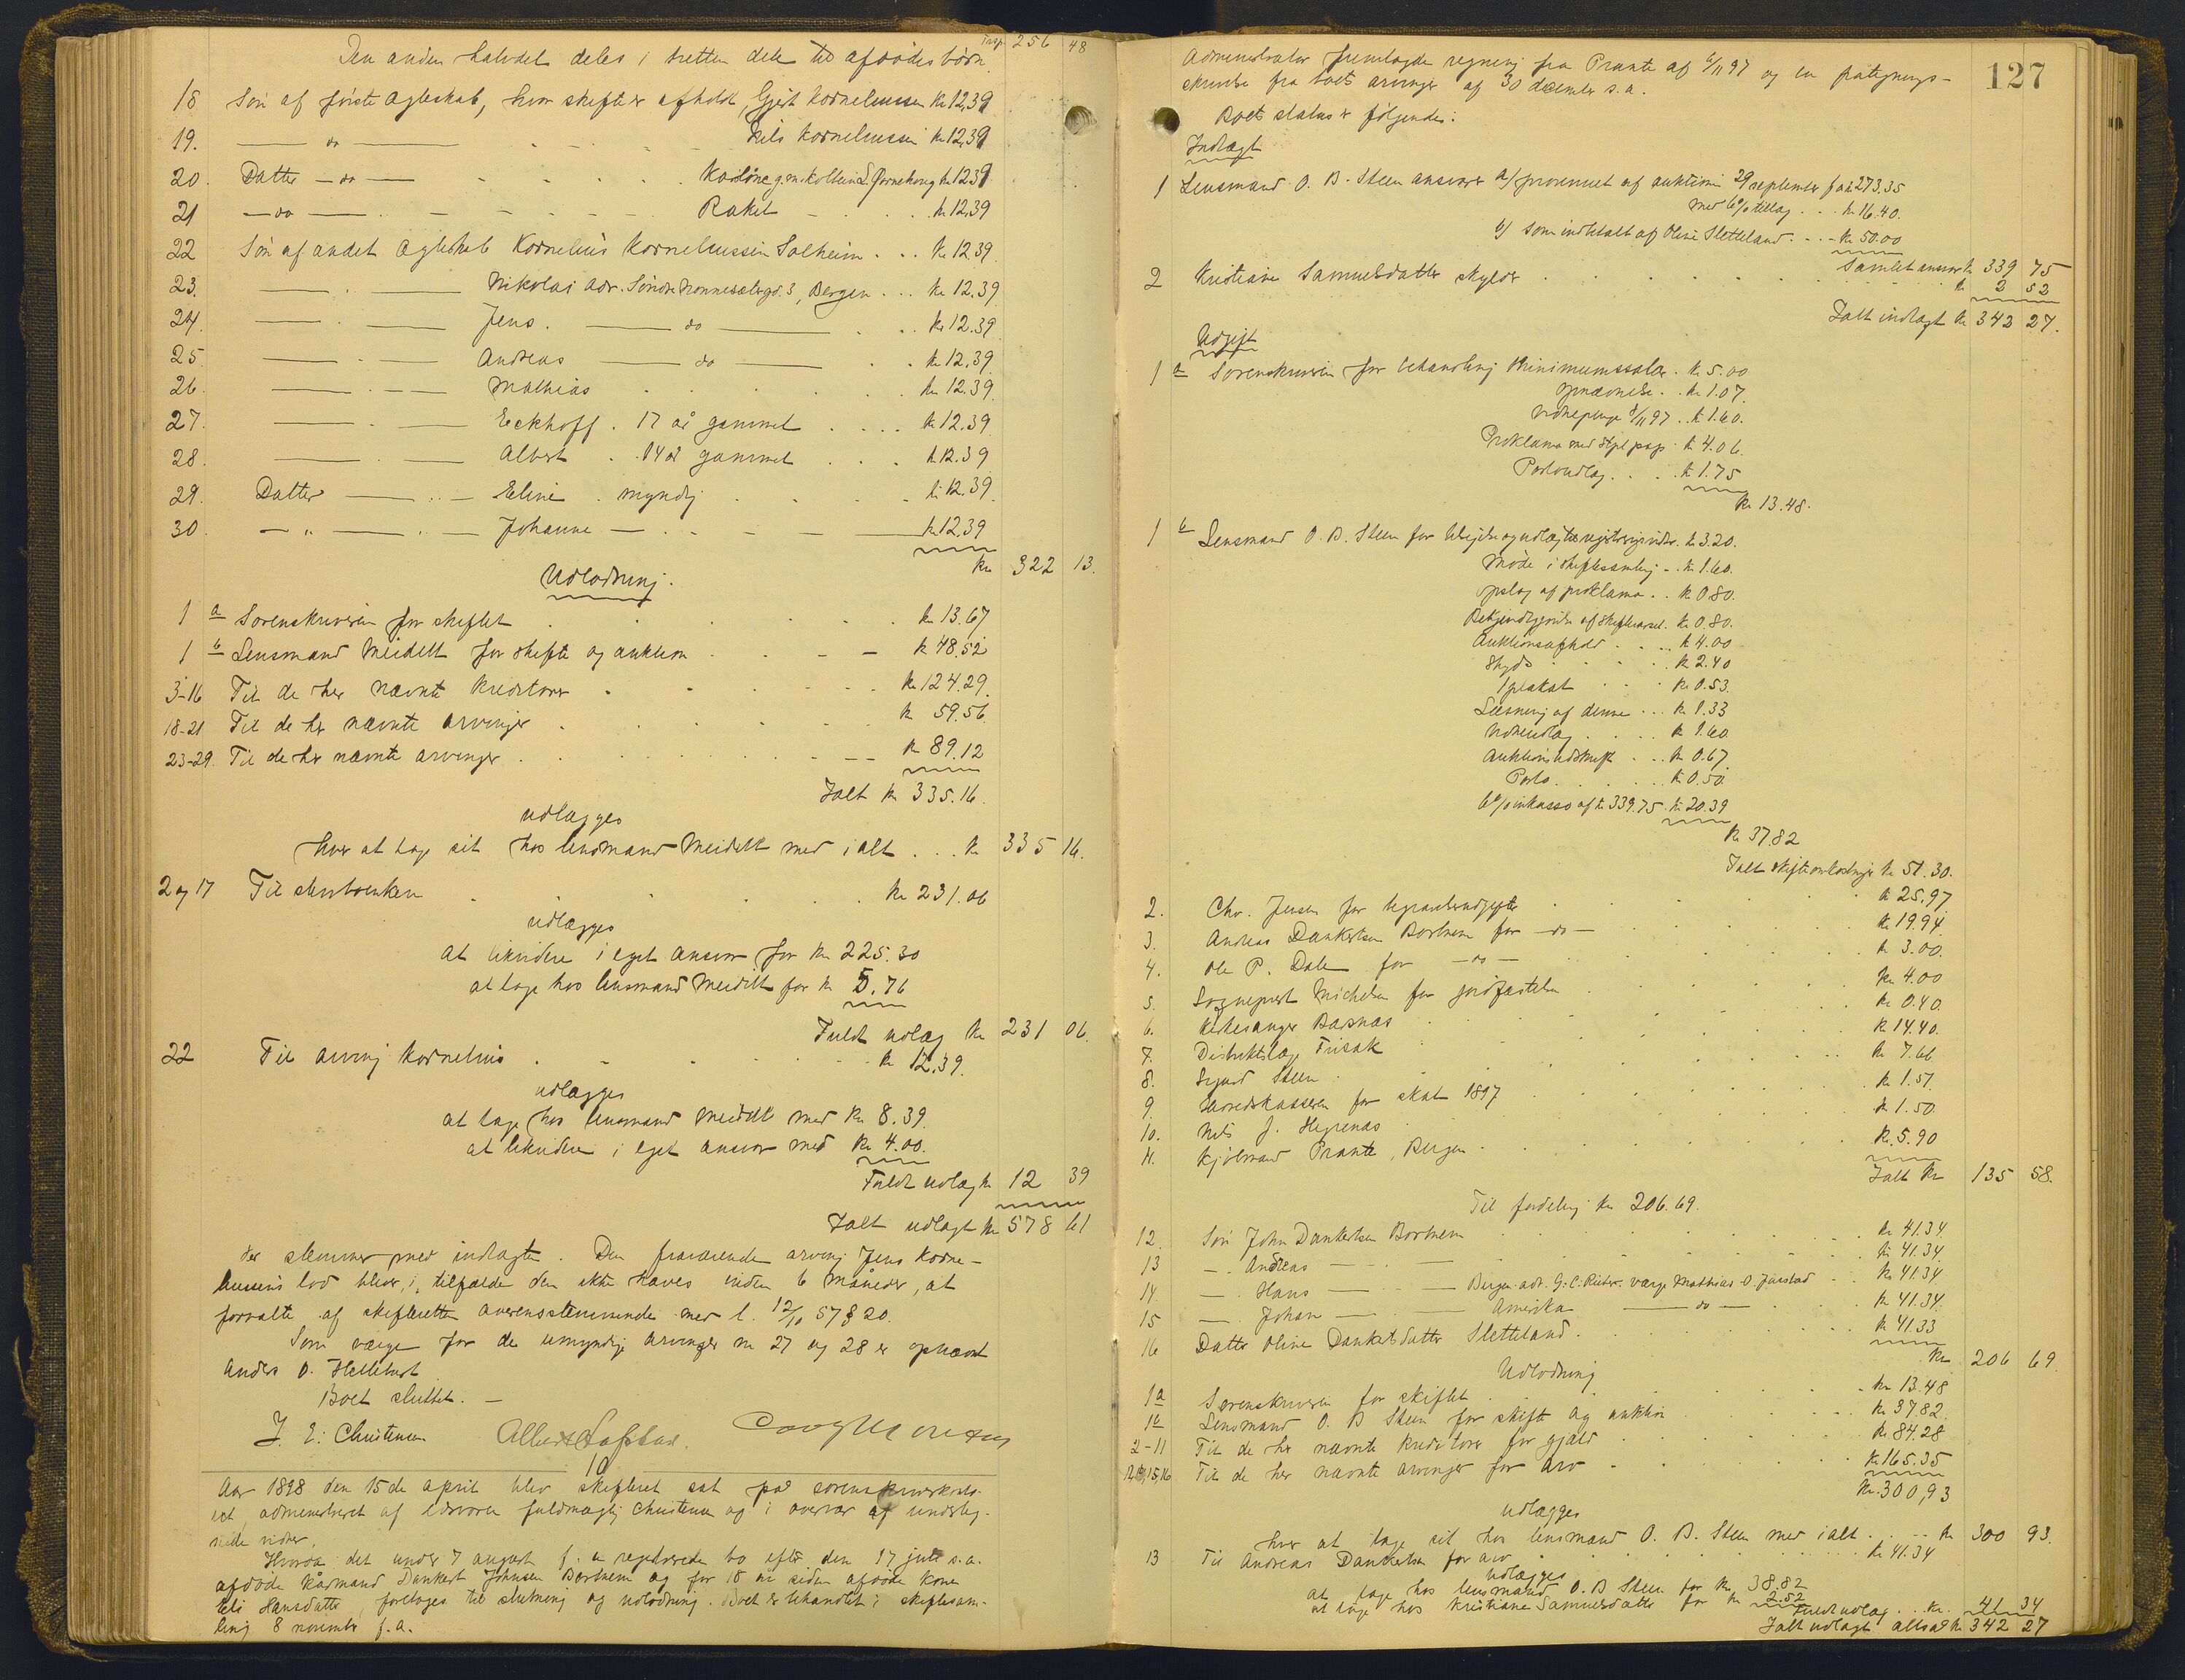 Trsp. 256 48
Den anden halvdel deles i tretten dele til afdødes børn.
18 Søn af første ægteskab, hvor skifte er afholdt, Gjert Kornelieussen kr 12,39
19. — do — Nils Korneliussen kr 12,39
20. Datter — do — kr 12,39
21 — do — Rakel kr 12,39
22 Søn af andet ægteskab Kornelius Korneliussen Solheim ... kr 12.39
23. — . — Nikolai adr. Søndre 3, Bergen ... kr 12,39
24. — . — Jens. — do — kr 12.39
25. — . — Andreas — do — kr 12,39
26. — . — Mathias kr 12.39
27. — . — Eckhoff . 17 år gammel .... kr 12.39
28. — . — Albert . 14 år gammel kr 12.39
29. Datter — " — Eline . myndig kr 12.39
30. — " — . — Johanne — kr 12.39
kr 322 13.
Udlodning.
1 a Sorenskriveren for skiftet kr 13.67
1 b Lensmand Meidell for skifte og auktion kr 48,52
3-16 Til de her nævnte kreditorer kr 124.29.
18-21 Til de her nævnte arvinger kr 59.56
23-29. Til de her nævnte arvinger kr 89.12
Ialt kr 335.16.
udlægges
hver at tage sit hos lensmand Meidell med ialt ... kr 335 16.
2 og 17 Til kr 231.06
udlægges
at likvidere i eget ansvar for kr 225.30
at tage hos lensmand Meidell for kr 5.76
Fuldt udlæg kr 231 06.
22 Til arving Kornelius kr 12.39.
udlægges
at tage hos lensmand Meidell med kr 8.39.
at likvidere i eget ansvar med kr 4.00.
Fuldt udlæg kr 12 39
Ialt udlagt kr 578 61
der stemmer med indtægten. Den fraværende arving Jens Korne-
liussens lod bliver, i tilfælde den ikke hæves inden 6 måneder, at
forvalte af skifteretten overensstemmende med l. 12/10 57 § 20.
Som værge for de umyndige arvinger no 27 og 28 er opnævnt
Anders O. Helletart
Boet sluttet. —
J. E. Christensen
10
Aar 1898 den 15de april blev skifteret sat på sorenskriverkonto-
ret, administreret af edsvoren fuldmægtig Christensen og i overvær af underteg-
nede vidner.
Hvorda det under 7 august f. a. registrerede bo efter den 17 juli s.a.
afdøde kårmand Dankert Johnsen Bortnem og for 18 år siden afdøde kone
Eli Hansdatter, foretoges til slutning og udlodning. Boet er behandlet i skiftesam-
ling 8 november f.a.
127
Administrator fremlagde regning fra Prante af 6/11 97 og en påtegnings-
skrivelse fra boets arvinger af 30 december s.a.
Boets status er følgende:
Indtægt
1 Lensmand O. B. Steen ansvar a/ provenuet af auktion 29 september f.a. kr 273.35
med 6% tillæg ... kr 16.40.
b/ som indbetalt af Oline Sletteland ... kr 50.00
Samlet ansvar kr 339 75
2 Kristiane Samuelsdatter skylder kr 2 52
Ialt indtægt kr 342 27.
Udgift
1 a Sorenskriveren for behandling Minimumssalær . kr 5.00
opnævnelse . . kr 1.07.
vidnepenge 8/11 97 .. kr 1.60.
Proklama med stpl.pap. kr 4.06.
Portoudlæg . . . kr 1.75
kr 13.48.
1 b Lensmand O. B. Steen for kr 3.20.
Møde i skiftesamling - . kr 1.60.
opslag af proklama . . kr 0.80.
Bekjendtgjørelse af skiftevarsel . kr 0.80.
Auktionsafhold . . . kr 4.00
Skyds kr 2.40
1 plakat kr 0.53.
Læsning af denne ... kr 1.33
Vidneudlæg . . . kr 1.60
Auktionsudskrift . .. kr 0.67.
Porto . . kr 0.50
6% inkasso af kr 339.75 . kr 20.39
kr 37.82
Ialt skifteomkostninger kr 51.30.
2. Chr. Jensen for begravelsesudgifter kr 25.97
3. Andreas Dankertsen Bortnem for — do — kr 19.94
4. Ole P. Dale for — do — kr 3.00.
5. Sogneprest Michelsen for jordfæstelse kr 4.00
6. Kirkesanger Barsnæs kr 0.40.
7. Distriktslæge Frisak kr 14.40.
8. Sigurd Steen kr 7.66
9. Herredskasseren for skat 1897 kr 1.51.
10. Nils J. Hegrenæs kr 1.50.
11. Kjøbmand Prante, Bergen kr 5.90
Ialt kr 135 58.
Til fordeling kr 206.69.
12. Søn John Dankertsen Bortnem kr 41.34.
13 — . Andreas — . — kr 41.34.
14. — . Hans — . — Bergen adr. G. C. værge Mathias O. kr 41.34
15 — . Johan — — Amerika — do — kr 41.34.
16 Datter Oline Dankertsdatter Sletteland . kr 41.33
kr 206 69.
Udlodning
1 a Sorenskriveren for skiftet kr 13.48
1 b Lensmand O. B Steen for skifte og auktion kr 37.82.
2-11 Til de her nævnte kreditorer for gjæld kr 84.28
12,14,15,16 Til de her nævnte arvinger for arv kr 165.35
kr. 300,93
udlægges
hver at tage sit hos lensmand O. B. Steen med ialt . . -- kr 300 93.
13 Til Andreas Dankertsen for arv kr 41.34
udlægges
at tage hos lensmand O. B Steen for kr 38.82
at tage hos Kristiane Samuelsdatter for kr 2.52
Fuldt udlæg ... kr. 41 34
Ialt udlagt altså kr 342 27